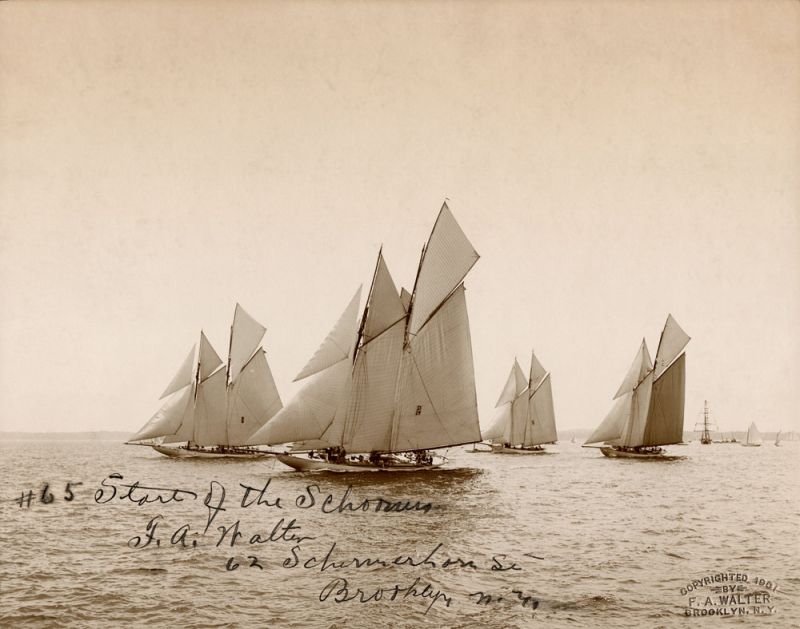 #65 Start of the Schooners
F. A. Walter
62 Schermerhorn St
Brooklyn, N.Y.
COPYRIGHTED 1901
BY
F. A. WALTER
BROOKLYN, N.Y.